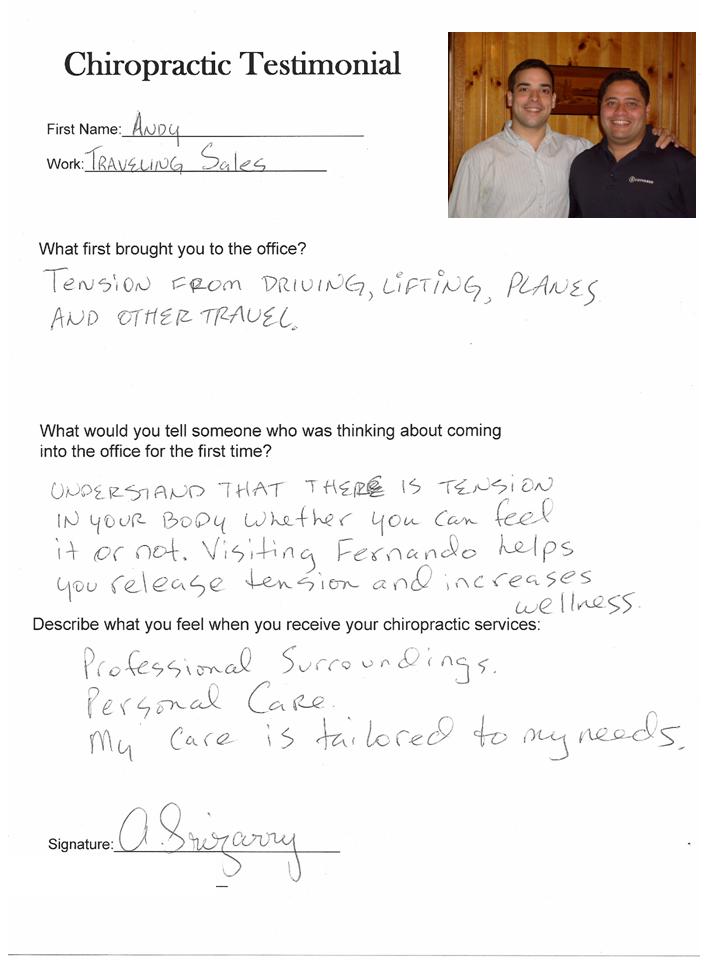 Chiropractic Testimonial
First Name: ANDY
Work: TRAVELING Sales
What first brought you to the office?
TENSION FROM DRIVING, LIFTING, PLANES
AND OTHER TRAVEL.
What would you tell someone who was thinking about coming
into the office for the first time?
UNDERSTAND THAT THERE IS TENSION
IN YOUR BODY whether you can feel
it or not. Visiting Fernando helps
you release tension and increases
wellness.
Describe what you feel when you receive your chiropractic services:
Professional Surroundings.
Personal Care.
My Care is tailored to my needs.
Signature: A.